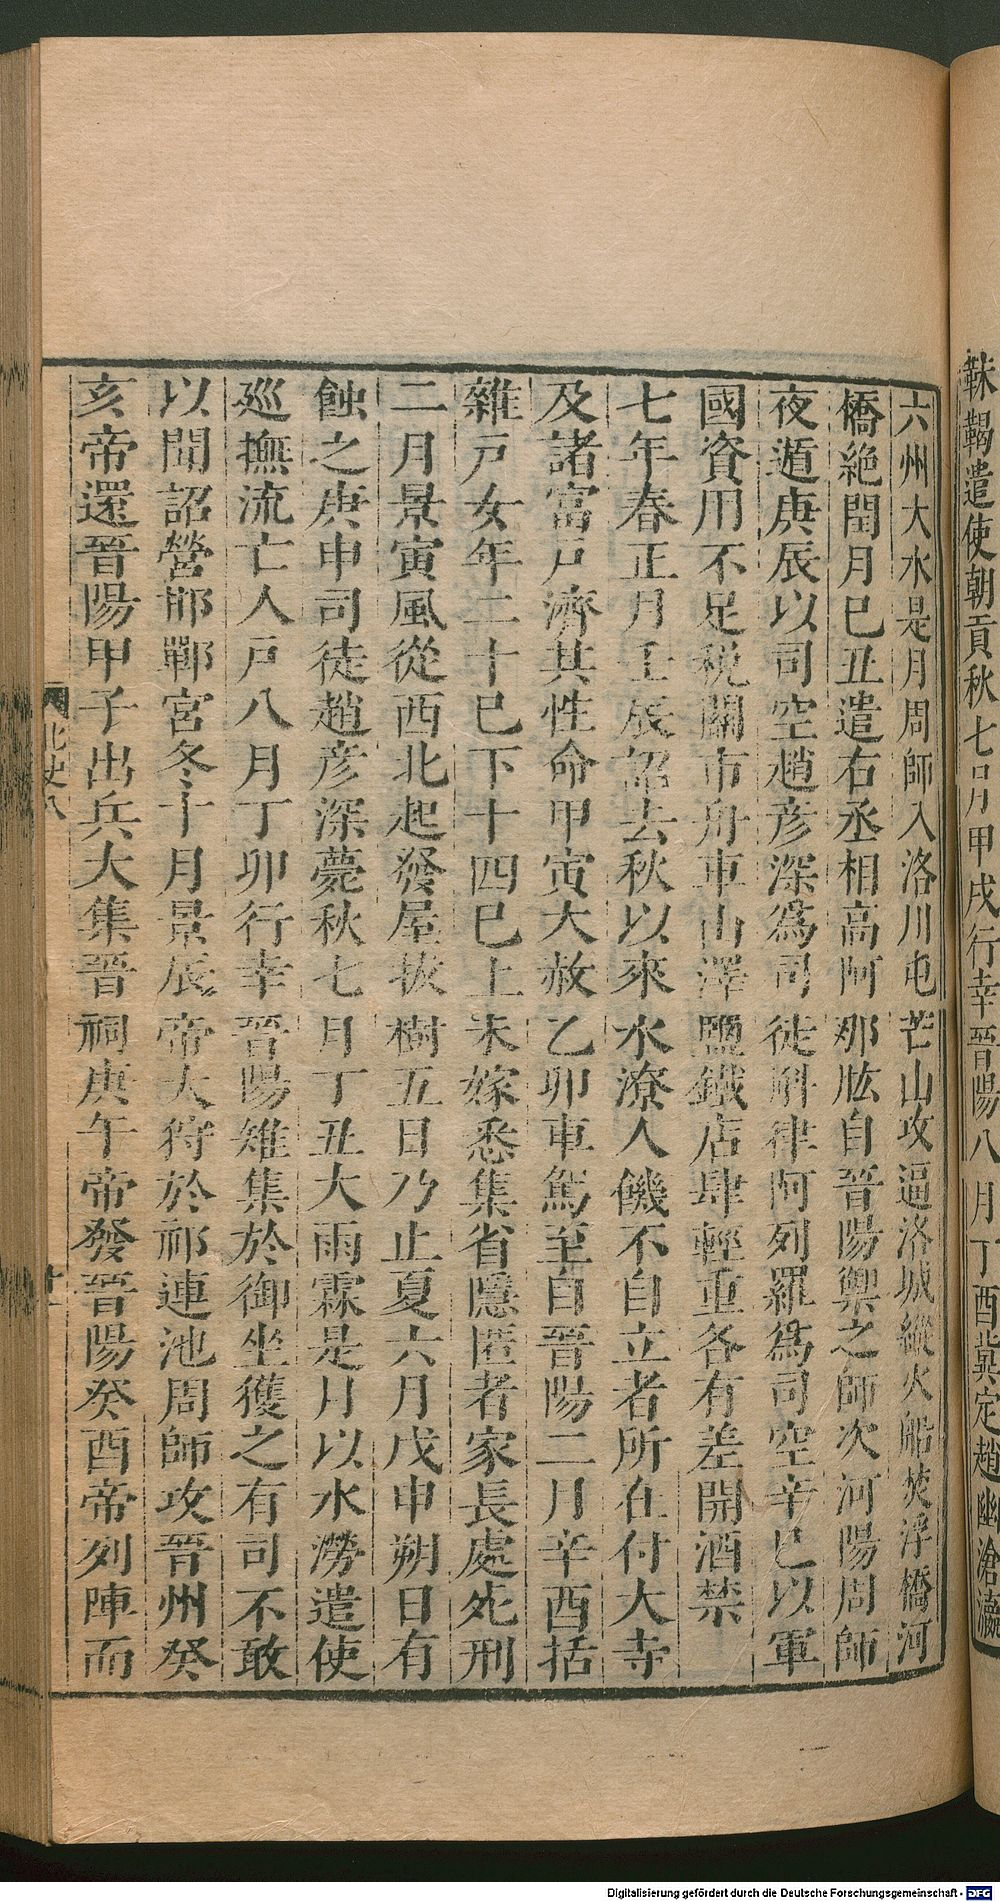 靺鞨遣使朝貢秋七月甲戌行幸晉陽八月丁酉冀定趙幽滄瀛
六州大水是月周師入洛川屯芒山攻逼洛城縱火船焚浮橋河
橋絶閏月巳丑遣右丞相高阿那肱自晉陽禦之師次河陽周師
夜遁庚辰以司空趙彦深爲司徒斛律阿列羅爲司空辛巳以軍
國資用不足税關市舟車山澤鹽鐵店肆輕重各有差開酒禁
七年春正月壬辰詔去秋以來水潦人饑不自立者所在付大寺
及諸富戸濟其性命甲寅大赦乙卯車駕至自晉陽二月辛酉括
雜戸女年二十巳下十四巳上未嫁悉集省隱匿者家長處死刑
二月景寅風從西北起發屋拔樹五日乃止夏六月戊申朔日有
蝕之庚申司徒趙彦深薨秋七月丁丑大雨霖是月以水澇遣使
巡撫流亡人戸八月丁卯行幸晉陽雉集於御坐獲之有司不敢
以聞詔營邯鄲宮冬十月景辰帝大狩於祁連池周師攻晉州癸
亥帝還晉陽甲子出兵大集晉祠庚午帝發晉陽癸酉帝列陣而
北史八
十一
Digitalisierung gefördert durch die Deutsche Forschungsgemeinschaft - DFG